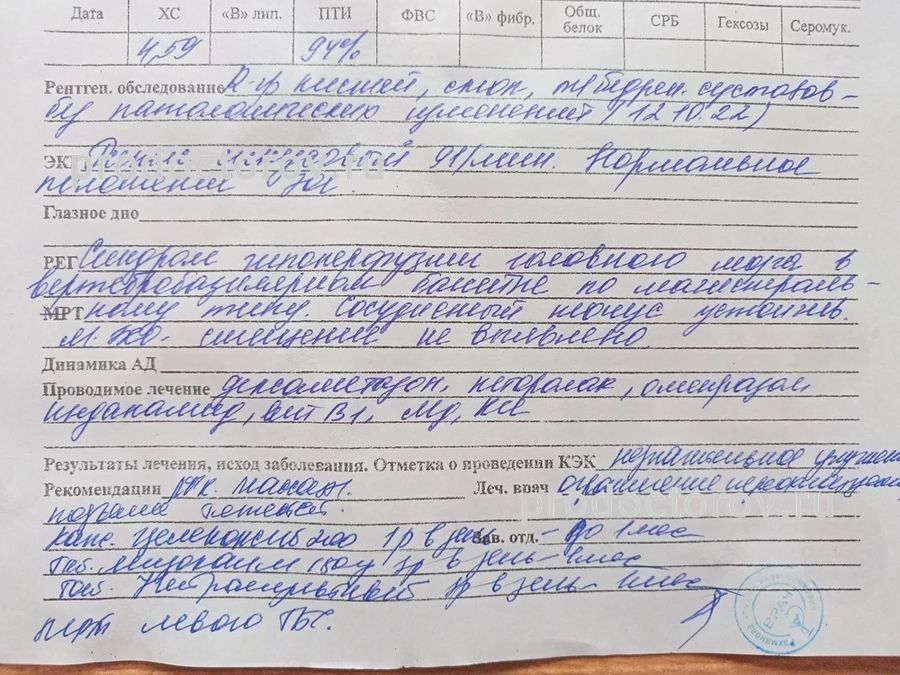 Дата ХС «В» лип. ПТИ ФВС «В» фибр. Общ. белок СРБ Гексозы Серомук.
4,59 94%
Рентген. обследование R-гр кистей, стоп, т/бедрен. суставов –
без патологических изменений (12.10.22)
ЭКГ Ритм синусовый 91/мин. Нормальное
положение ЭОС.
Глазное дно
РЕГ Синдром гипоперфузии головного мозга в
вертебробазилярном бассейне по магистраль-
МРТ ному типу. Сосудистый тонус устойчив.
М-ЭХО- смещение не выявлено.
Динамика АД
Проводимое лечение дексаметазон, кеторолак, омепразол,
индапамид, вит B1, МД,
Результаты лечения, исход заболевания. Отметка о проведении КЭК незначительное
Рекомендации Леч. врач ограничение
подъема тяжестей.
Капс. Целекоксиб 200 1р в день Зав. отд. – до 1 мес
Таб. Мидокалм 150 р в день – 1 мес
Таб. р в день – 1 мес
МРТ левого ТБС.
prodoctorov.ru
prodoctorov.ru